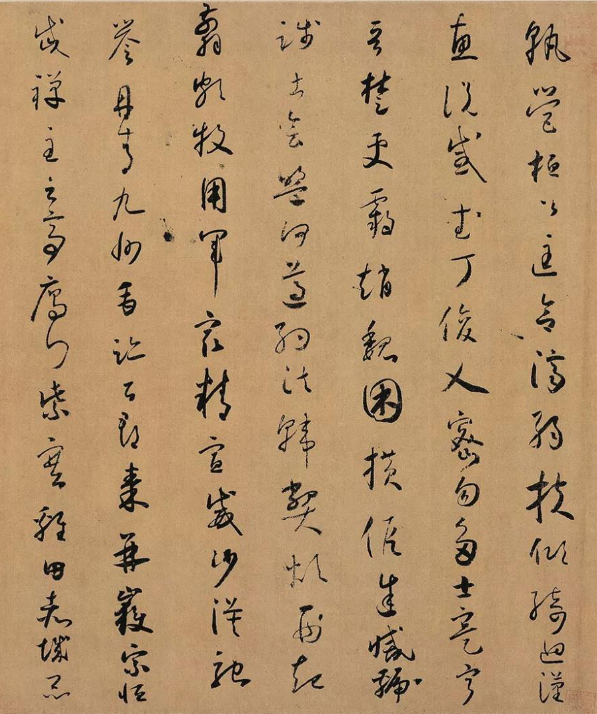 孰營桓公匡合濟弱扶傾綺迴漢
惠說感武丁俊乂密勿多士寔寧
晉楚更霸趙魏困橫假途滅虢
踐土會盟何遵約法韓弊煩刑起
翦頗牧用軍最精宣威沙漠馳
譽丹青九州禹跡百郡秦并嶽宗恒
岱禪主云亭雁門紫塞雞田赤城昆